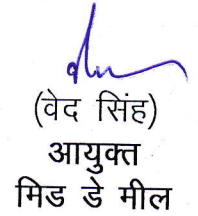 (वेद सिंह)
आयुक्त
मिड डे मील